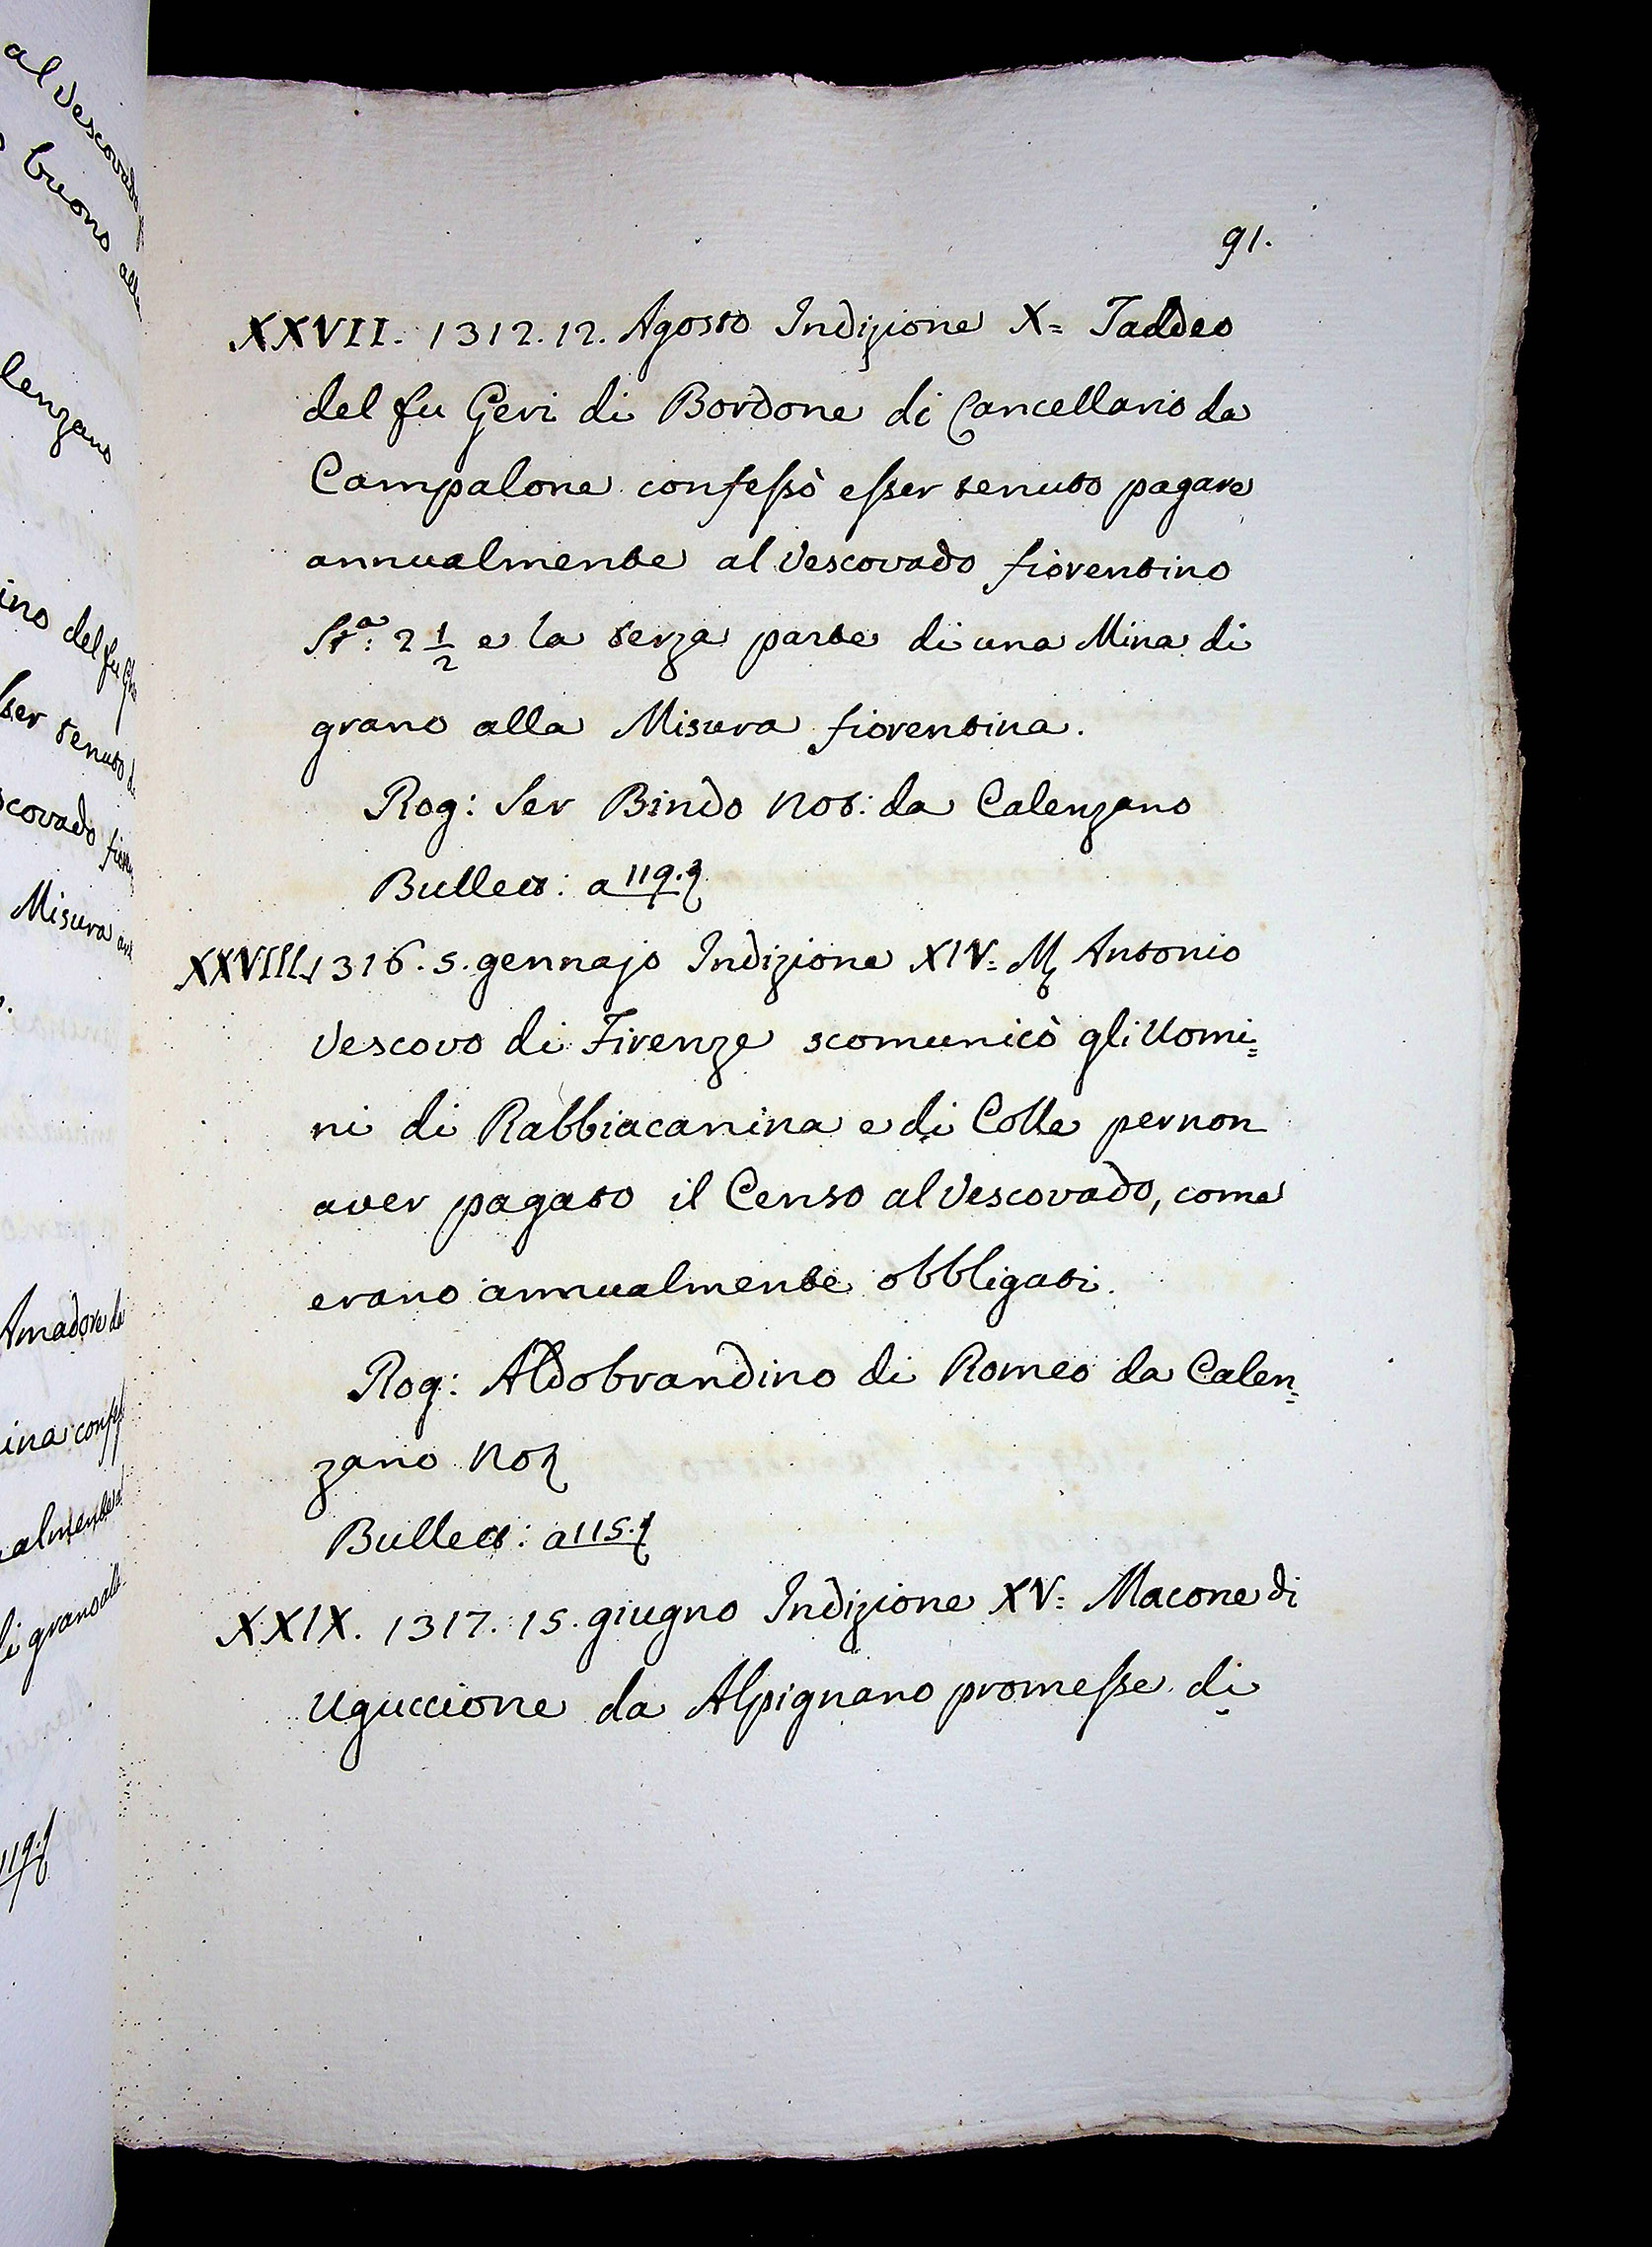 91.
XXVII. 1312. 12. Agosto Indizione X= Taddeo
del fu Geri di Bordone di Cancellario da
Campalone confessò esser tenuto pagare
annualmente al Vescovado fiorentino
Sta: 2 1/2 e la terza parte di una Mina di
grano alla Misura fiorentina.
Rog: Ser Bindo Not: da Calenzano
Bullett: a 119.
XXVIII. 1316. 5. gennajo Indizione XIV= M Antonio
Vescovo di Firenze scomunicò gli Uomi=
ni di Rabbiacanina e di Colle per non
aver pagato il Censo al Vescovado, come
erano annualmente obbligati.
Rog: Aldobrandino di Romeo da Calen=
zano Not
Bullett: a 115.
XXIX. 1317. 15. giugno Indizione XV= Macone di
Uguccione da Alpignano promesse di
al Vescovado
buono alla
lenzano
ino del fu
sser tenuto
scovado
Misura
Amadore
ina
almente
di grano
119.